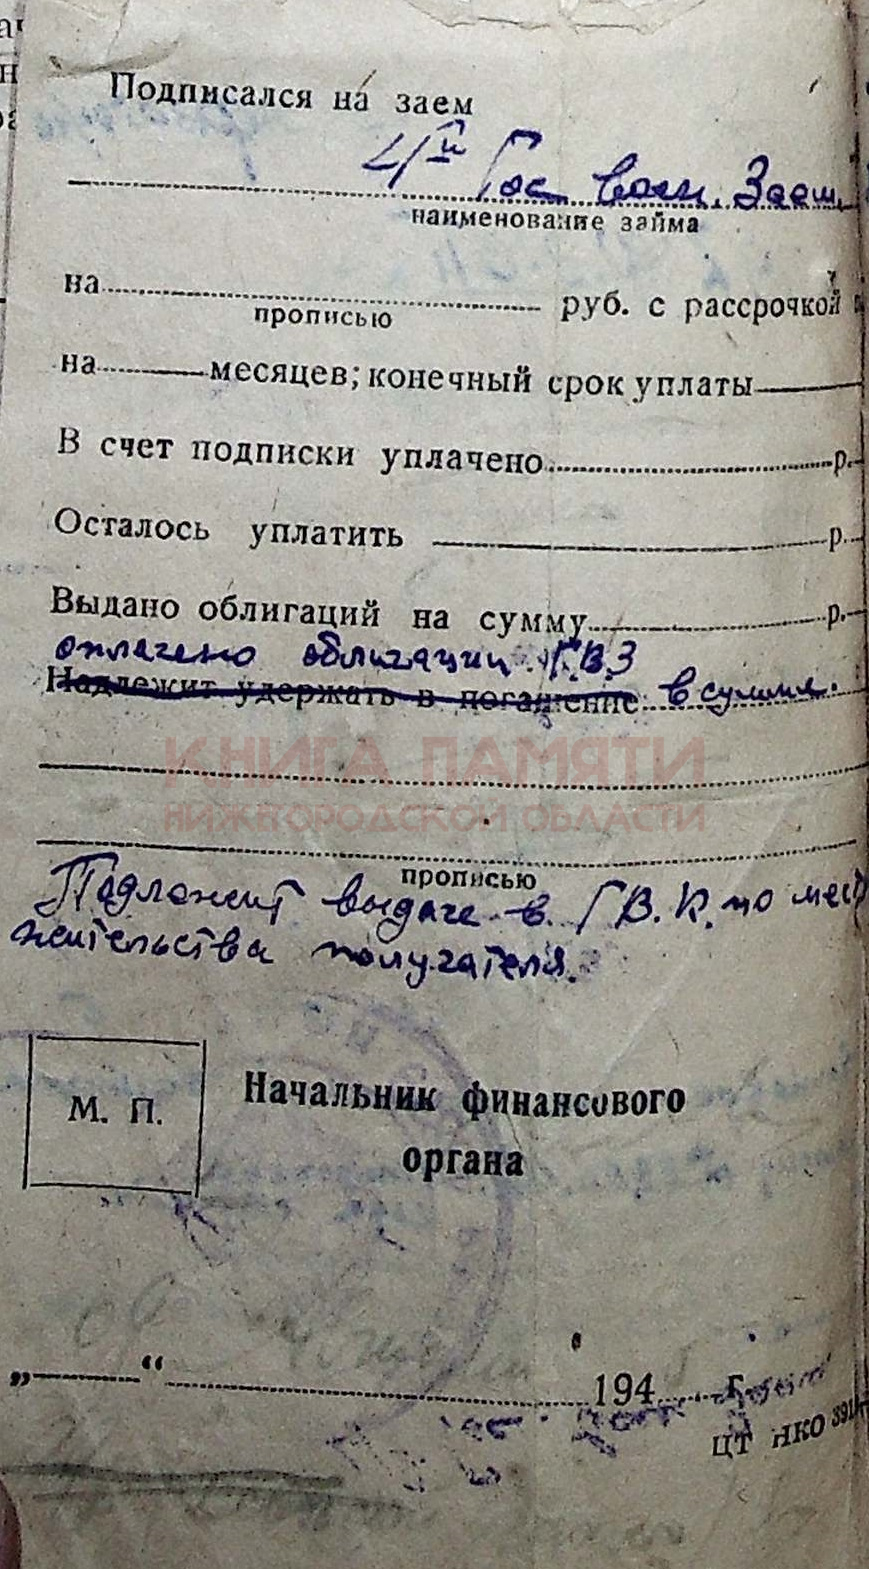 Подписался на заем
4й Гос воен. Заем.
наименование займа
на руб. с рассрочкой
прописью
на месяцев; конечный срок уплаты
В счет подписки уплачено р.
Осталось уплатить р.
Выдано облигаций на сумму р.
оплачено облигации Г.В.З
Надлежит удержать в погашение в сумме.
КНИГА ПАМЯТИ
НИЖЕГОРОДСКОЙ ОБЛАСТИ
прописью
Подлежит выдаче в Г В.К. по мест
жительства получателя.
М. П.
Начальник финансового
органа
„ “ 194 г.
ЦТ НКО 391